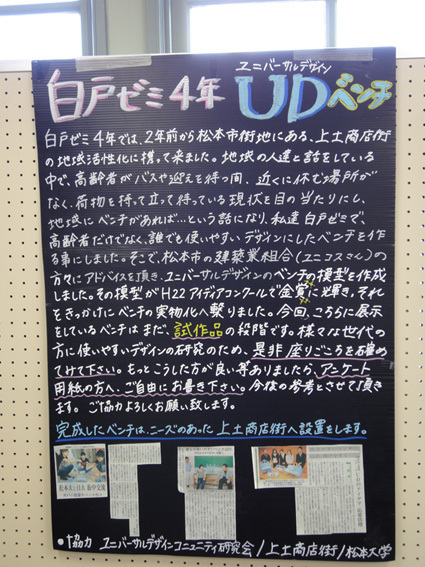 白戸ゼミ4年 UDベンチ
ユニバーサルデザイン
白戸ゼミ4年では、2年前から松本市街地にある、上土商店街
の地域活性化に携って来ました。地域の人達と話をしている
中で、高齢者がバスや迎えを待つ間、近くに休む場所が
なく、荷物を持って立って待っている現状を目の当たりにし、
地域にベンチがあれば…という話になり、私達白戸ゼミで、
高齢者だけでなく、誰でも使いやすいデザインにしたベンチを作
る事にしました。そこで、松本市の建築業組合(ユニコスさん)の
方々にアドバイスを頂き、ユニバーサルデザインのベンチの模型を作成
しました。その模型がH22アイディアコンクールで金賞に輝き、それ
をきっかけにベンチの実物化へ繋りました。今回、こちらに展示
をしているベンチはまだ、試作品の段階です。様々な世代の
方に使いやすいデザインの研究のため、是非座りごこちを確め
てみて下さい。もっとこうした方が良い等ありましたら、アンケート
用紙の方へ、ご自由にお書き下さい。今後の参考とさせて頂き
ます。ご協力よろしくお願い致します。
完成したベンチは、ニーズのあった上土商店街へ設置をします。
●協力 ユニバーサルデザインコミュニティ研究会/上土商店街/松本大学